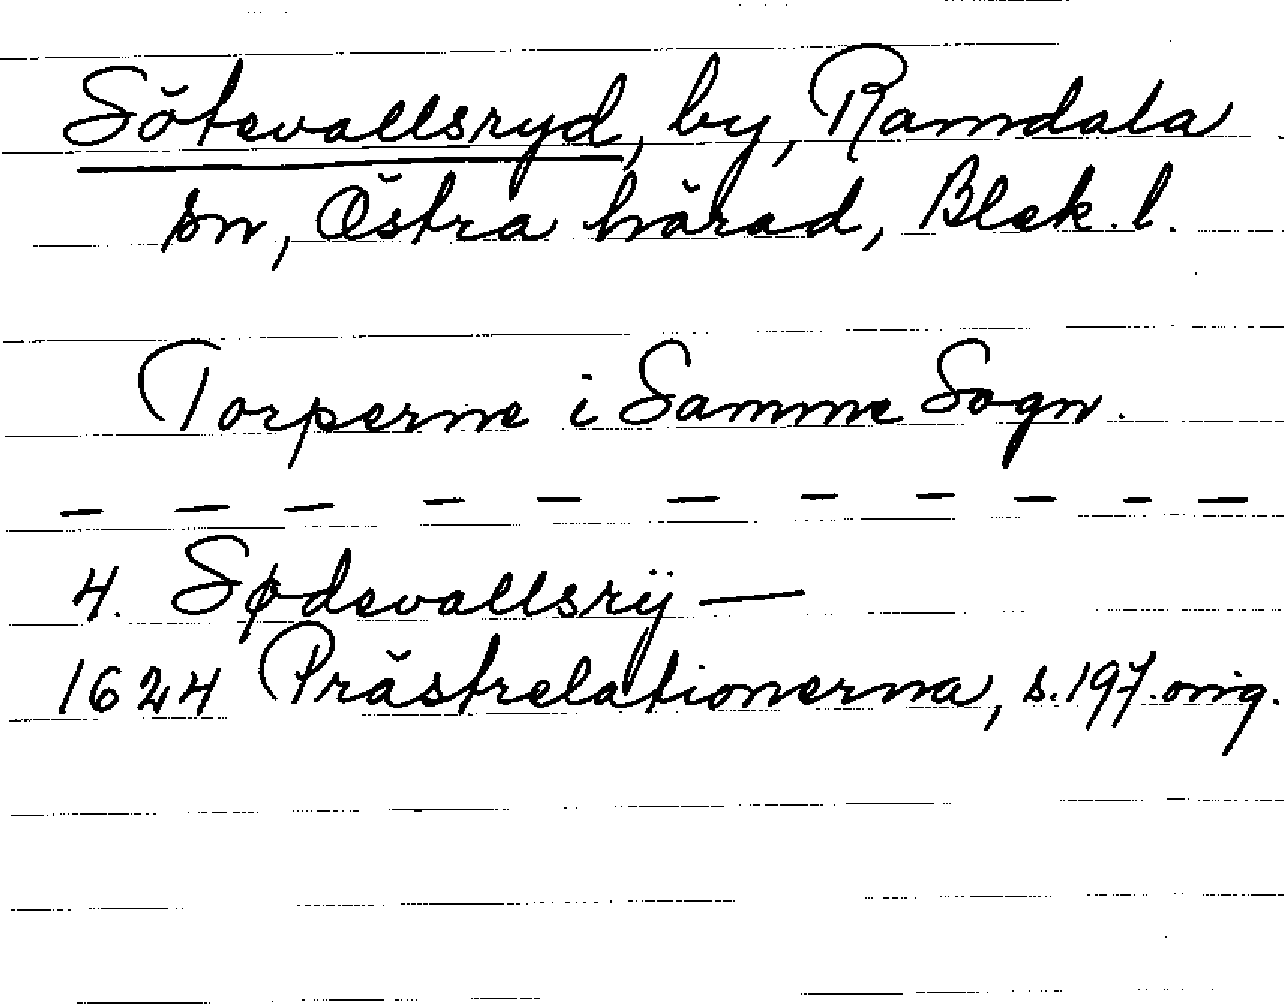 Sötevallsryd, by, Ramdala
sn, Östra härad, Blek. l.
Torperne i Samme Sogn.
— — — — — — — — — — —
4. Sødevallsrÿ —
1624 Prästrelationerna, s. 197. orig.